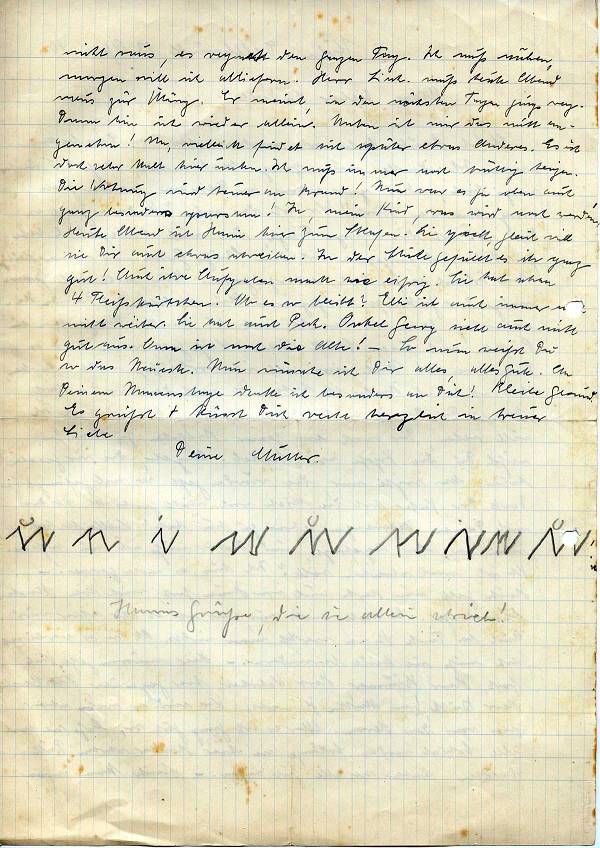 nicht raus, es regnet den ganzen Tag. Ich muß nähen,
morgen will ich abliefern. Herr muß heute Abend
raus zur Übung. Er meint, in den nächsten Tagen gings weg.
Dann bin ich wieder allein. Unten ist mir das nicht an-
genehm! Na, vielleicht findet sich später etwas Anderes. Es ist
doch sehr kalt hier unten. Ich muß immer noch tüchtig heizen.
Die Wohnung wird teuer an Brand! Nun war es ja oben auch
ganz besonders sparsam! Ja, mein Kind, was wird noch werden,
Heute Abend ist Hanni hier zum Schlafen. Sie gleich will
sie Dir auch etwas schreiben. In der Schule gefällt es ihr ganz
gut! Auch ihre Aufgaben macht sie eifrig. Sie hat schon
4 Fleißkärtchen. Ob es so bleibt? Elli ist auch immer noch
nicht weiter. Sie hat auch Pech. Onkel Georg sieht auch nicht
gut aus. ist noch die Alte! – So nun weißt Du
so das Neueste. Nun wünsche ich Dir alles, alles Gute. An
Deinem Namenstage denke ich besonders an Dich! Bleibe gesund.
Es grüßt + küsst Dich recht herzlich in treuer
Liebe
Deine Mutter.
Hannis Grüße, die sie allein schrieb!